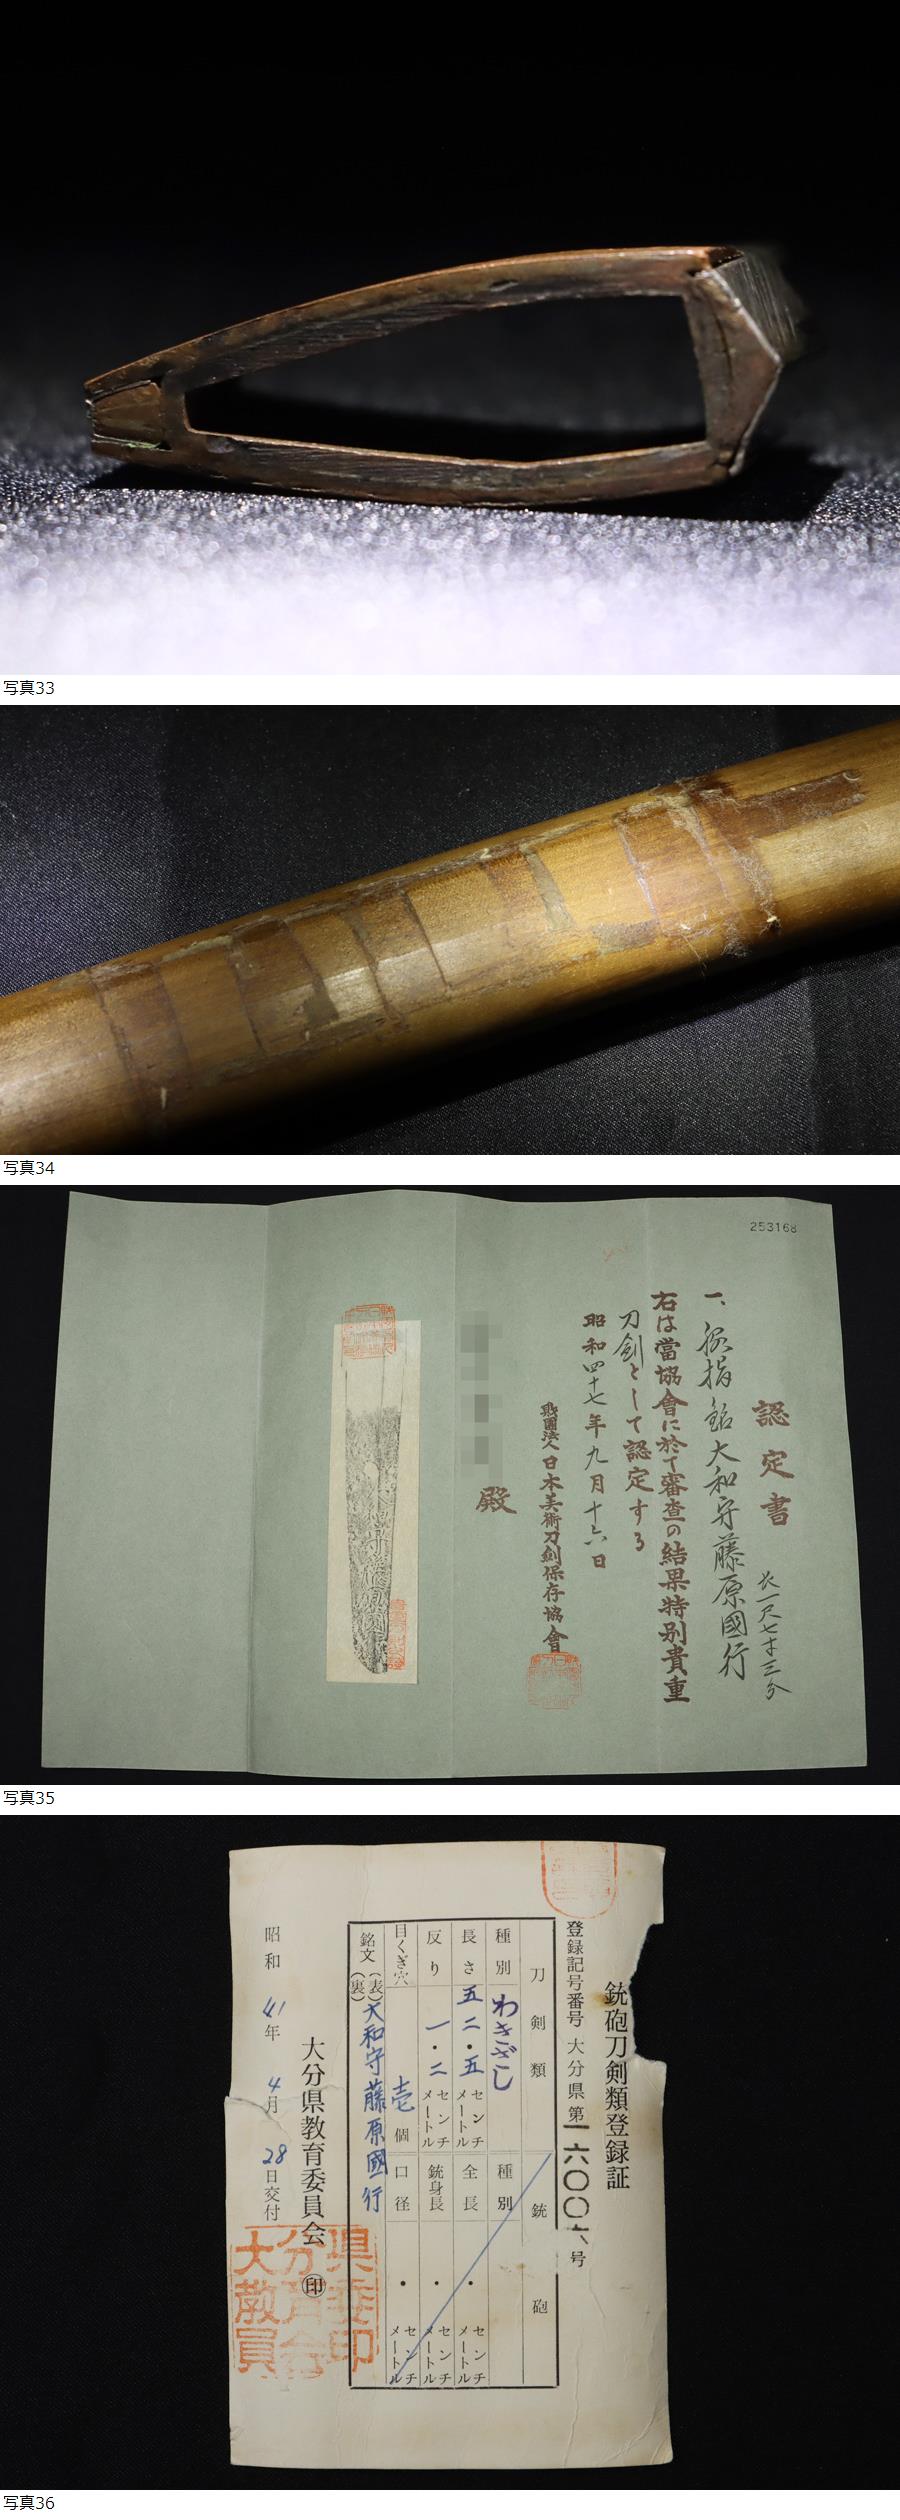 写真33
写真34
253168
認定書
一、脇指 銘 大和守藤原國行
長一尺七寸三分
右は當協會に於て審査の結果特別貴重
刀剣として認定する
昭和四十七年九月十六日
財團法人日本美術刀剣保存協會
殿
写真35
銃砲刀剣類登録証
登録記号番号 大分県 第一六〇〇六号
刀剣類
種別 わきざし
長さ 五二・五 センチメートル
反り 一・二 センチメートル
目くぎ穴 壱個
銘文 (表) 大和守藤原國行
(裏)
銃砲
種別
全長 ・ センチメートル
銃身長 ・ センチメートル
口径 ・ センチメートル
大分県教育委員会 印
昭和41年4月28日交付
写真36